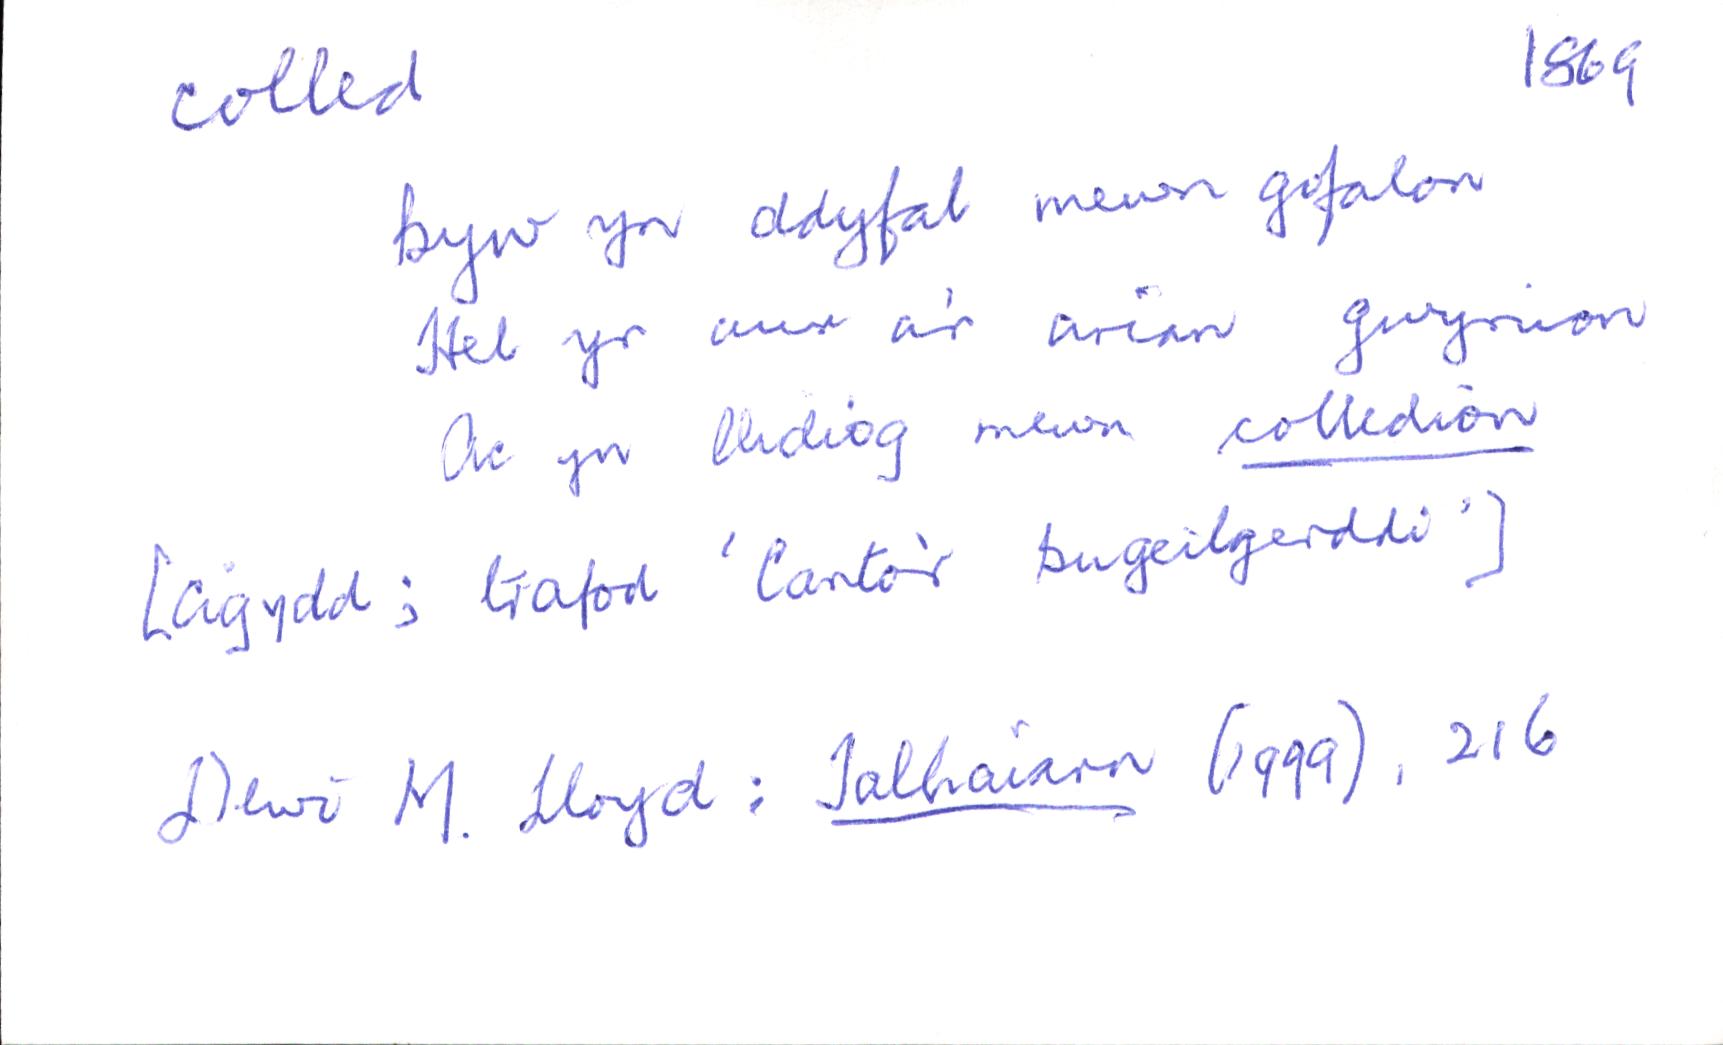 colled 1869
byw yn ddyfal mewn gofalon
Hel yr aur a'r arian gwynion
Ac yn llidiog mewn colledion
[Cigydd; trafod 'Cantor bugeilgerddi']
Dewi M. Lloyd: Talhaiarn (1999), 216